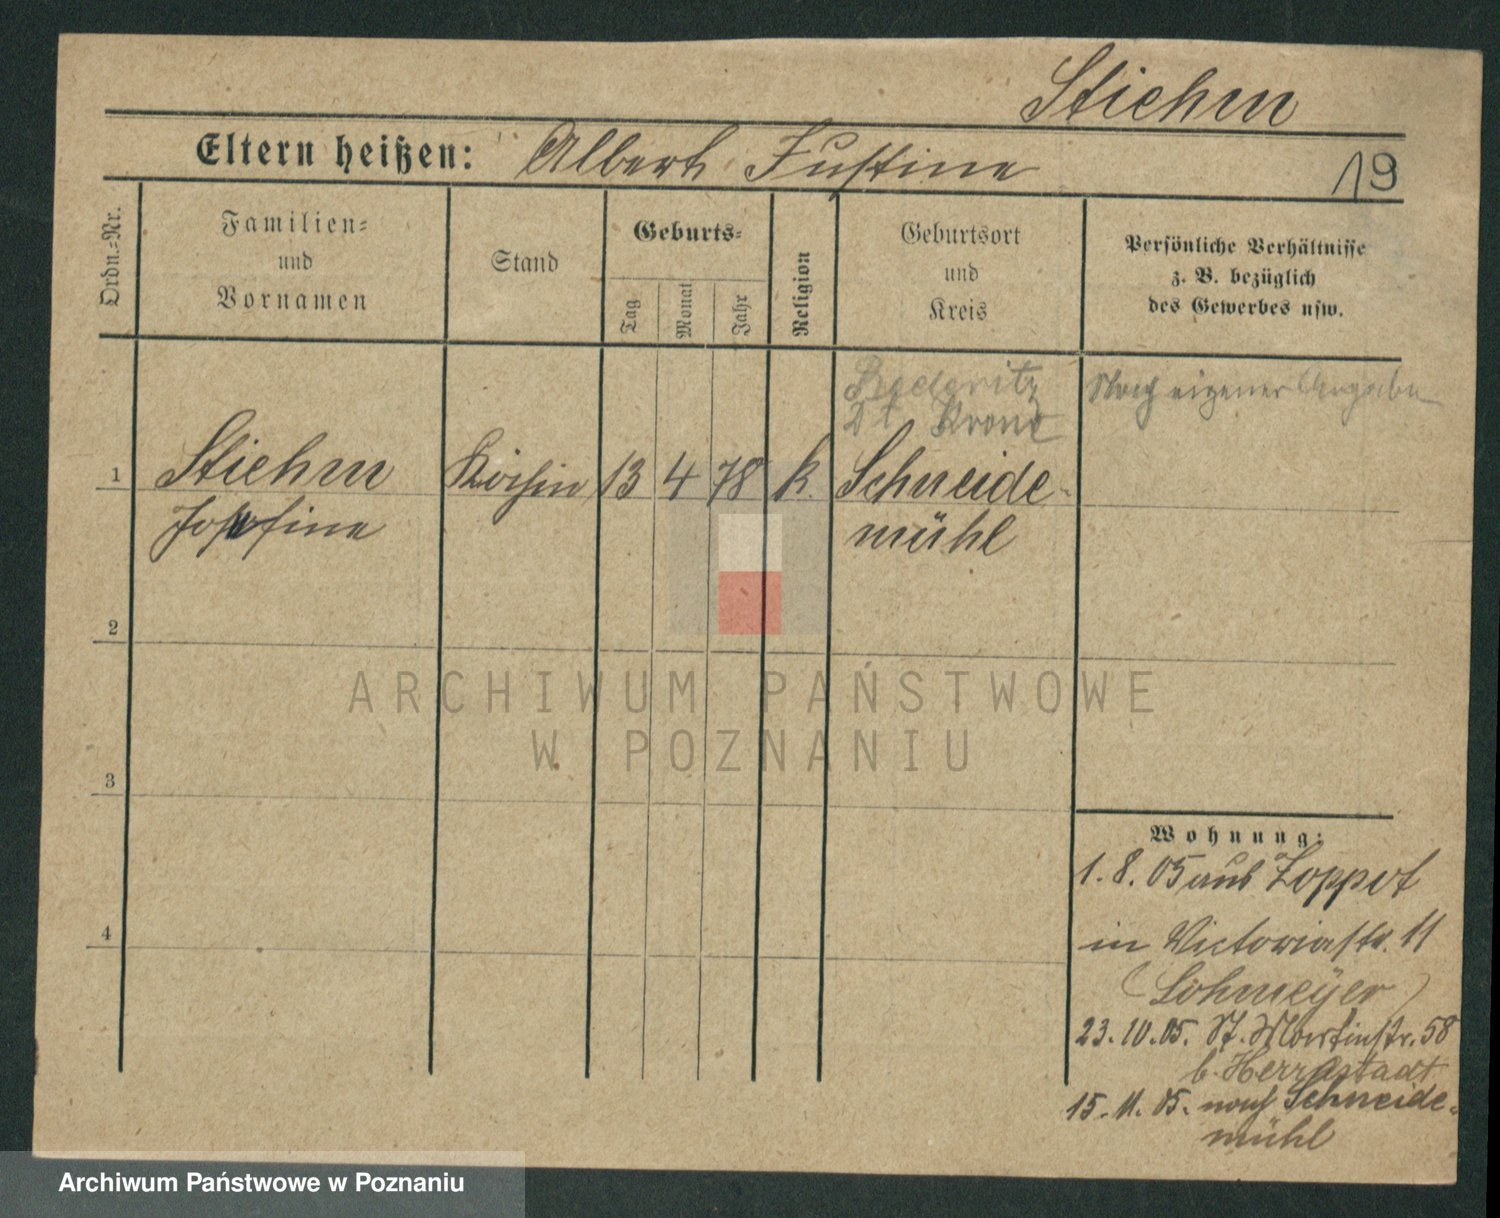 Stiehm
Eltern heißen: Albert Justine
19
Ordn.=Nr.
Familien=
und
Vornamen
Stand
Geburts=
Tag
Monat
Jahr
Religion
Geburtsort
und
Kreis
Persönliche Verhältnisse
z. B. bezüglich
des Gewerbes usw.
Rederitz
Dt Krone
Nach eigener Angabe
1 Stiehm Köchin 13 4 78 k. Schneide-
Josefine mühl
2
ARCHIWUM PAŃSTWOWE
W POZNANIU
3
Wohnung:
1. 8. 05 aus Zoppot
4
in Victoriastr. 11
(Lohmeyer)
23. 10. 05. St. Martinstr. 58
b. Herrnstadt
15. 11. 05. nach Schneide-
mühl
Archiwum Państwowe w Poznaniu